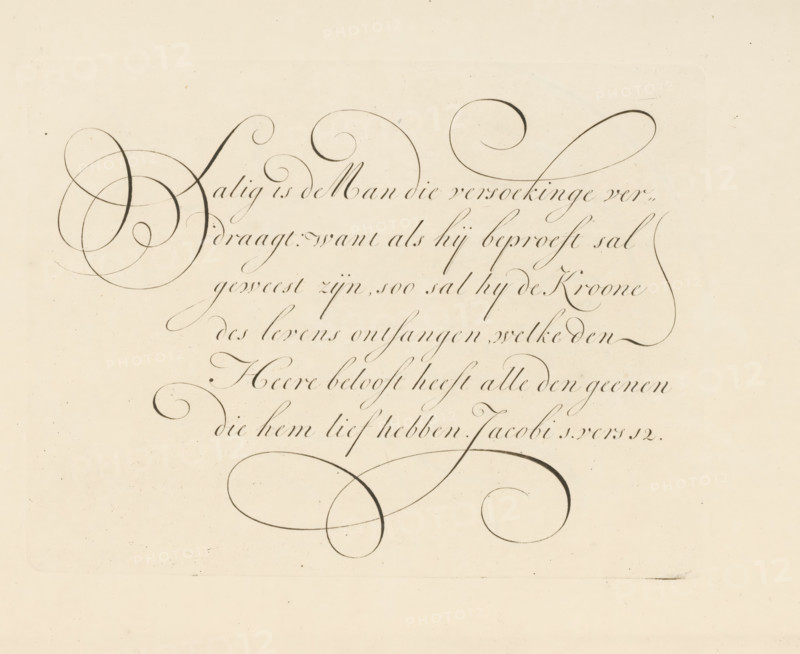 Salig is de Man die versoekinge ver„
draagt: want als hÿ beproeft sal
geweest zÿn, soo sal hy de Kroone
des levens ontfangen welke den
Heere belooft heeft alle den geenen
die hem lief hebben. Jacobi 1. vers 12.